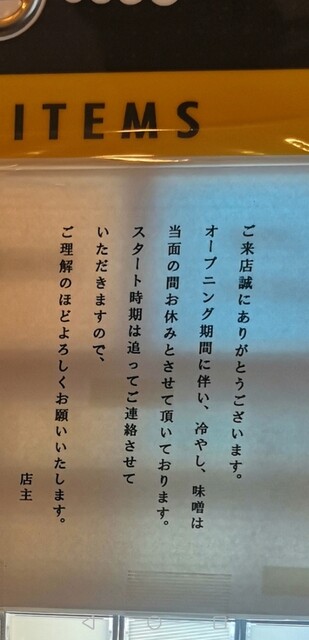 ITEMS
ご来店誠にありがとうございます。
オープニング期間に伴い、冷やし、味噌は
当面の間お休みとさせて頂いております。
スタート時期は追ってご連絡させて
いただきますので、
ご理解のほどよろしくお願いいたします。
店主